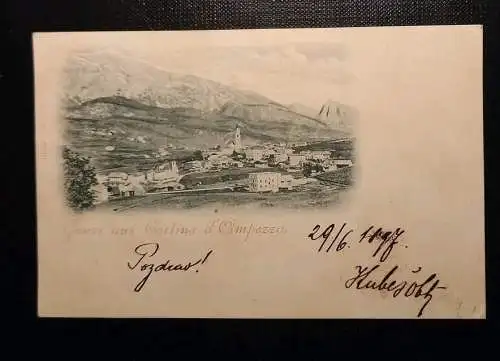 Gruss aus Cortina d'Ampezzo.
29/6. 1897.
Pozdrav!